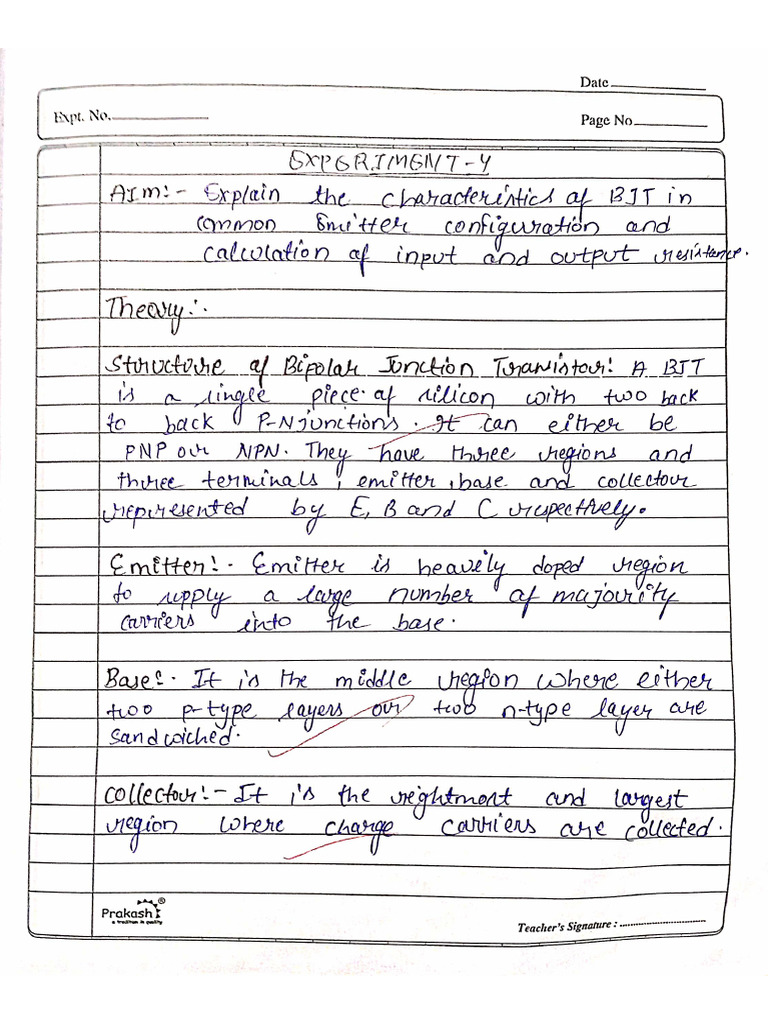 Date
Expt. No.
Page No
EXPERIMENT-4
AIm:- Explain the characteristics of BJT in
common Emitter configuration and
calculation of input and output resistance.
Theory:-
Structure of Bipolar Junction Transistor: A BJT
is a single piece of silicon with two back
to back P-N junctions. It can either be
PNP or NPN. They have three regions and
three terminals, emitter, base and collector
represented by E, B and C respectively.
Emitter:- Emitter is heavily doped region
to supply a large number of majority
carriers into the base.
Base:- It is the middle region where either
two p-type layers or two n-type layer are
sandwiched.
Collector:- It is the rightmont and largest
region where charge carriers are collected.
Prakash
a tradition in quality
Teacher's Signature :